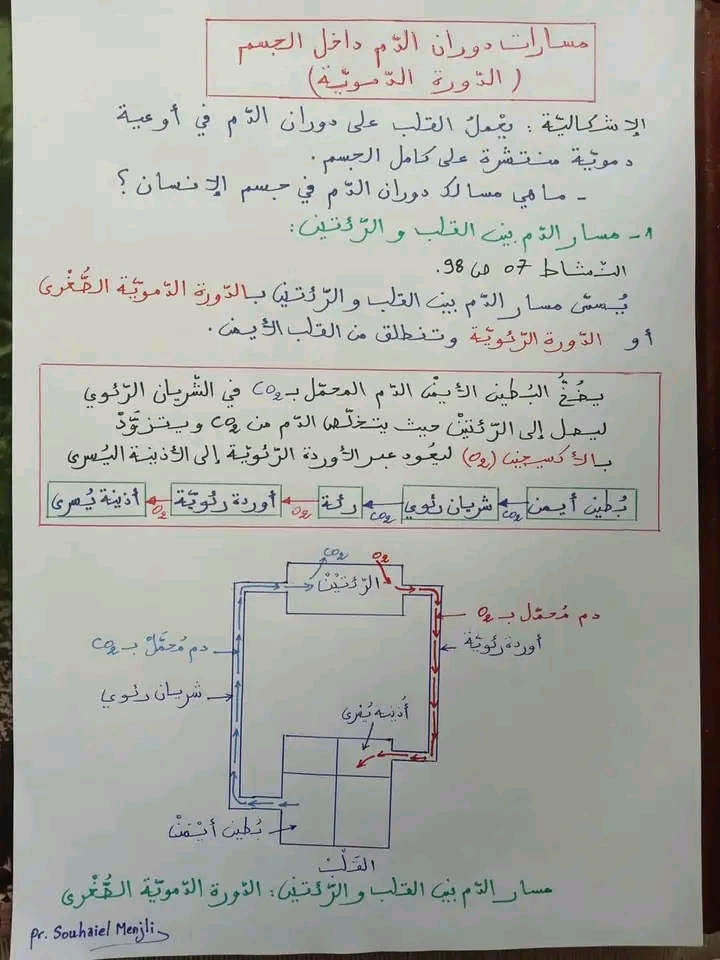 مسارات دوران الدّم داخل الجسم
(الدّورة الدّمويّة)
الإشكاليّة : يعْملُ القلب على دوران الدّم في أوعية
دمويّة منتشرة على كامل الجسم.
- ماهي مسالك دوران الدّم في جسم الإنسان ؟
1- مسار الدّم بين القلب و الرّئتين:
النّشاط 07 ص 98.
يُسمّى مسار الدّم بين القلب و الرّئتين بـالدّورة الدّمويّة الصُّغْرى
أو الدّورة الرّئويّة وتنطلق من القلب الأيمن.
يضُخُّ البُطين الأيمن الدّم المحمّل بـ CO2 في الشّريان الرّئوي
ليصل إلى الرّئتيْن حيث يتخلّص الدّم من CO2 ويتزوّدْ
بالأكسيجين (O2) ليعُود عبر الأوردة الرّئويّة إلى الأذينة اليُسرى
بُطين أيمن CO2 شريان رئوي CO2 رئة O2 أوردة رئويّة O2 أذينة يُسرى
CO2 O2
الرّئتيْنْ
دم مُحمّل بـ O2
أوردة رئويّة
دم مُحمَّلْ بـ CO2
شريان رئوي
أُذينة يُسْرى
بُطين أيْمَنْ
القَلْبْ
مسار الدّم بين القلب و الرّئتين: الدّورة الدّمويّة الصُّغْرى
Pr. Souhaiel Menjli